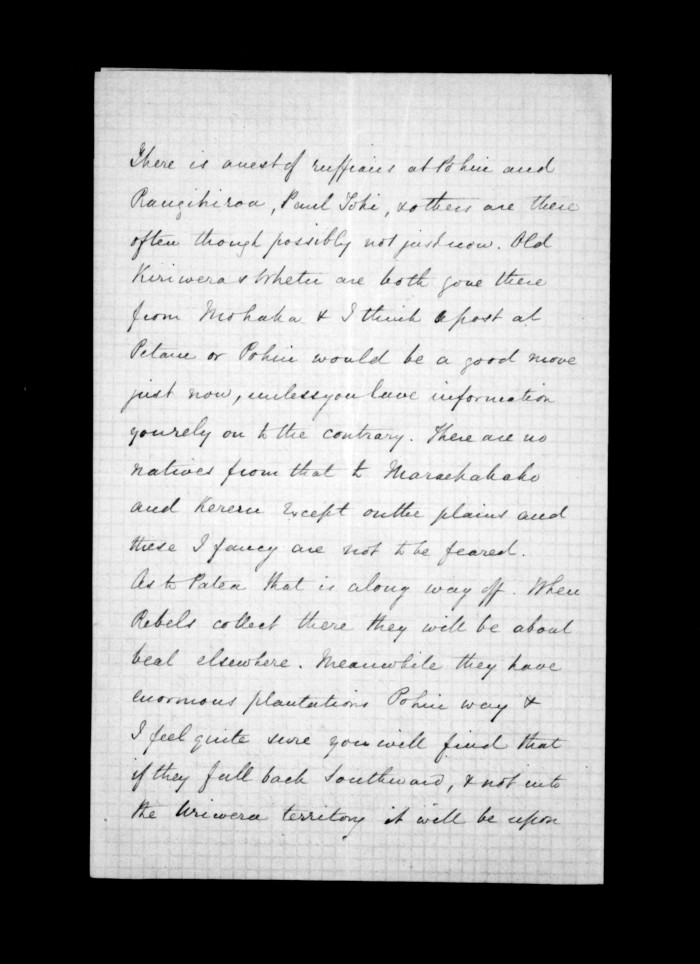 There is a nest of ruffians at Pohui and
Rangihiroa, Paul Toki, & others are there
often though possibly not just now. Old
Kiriwera & Whetu are both gone there
from Mohaka & I think a post at
Petane or Pohui would be a good move
just now, unless you have information
you rely on to the contrary. There are no
natives from that to Maraekakaho
and Kereru except on the plains and
these I fancy are not to be feared.
As to Patea that is a long way off. When
Rebels collect there they will be about
beat elsewhere. Meanwhile they have
enormous plantations Pohui way &
I feel quite sure you will find that
if they fall back Southward, & not into
the Uriwera territory it will be upon